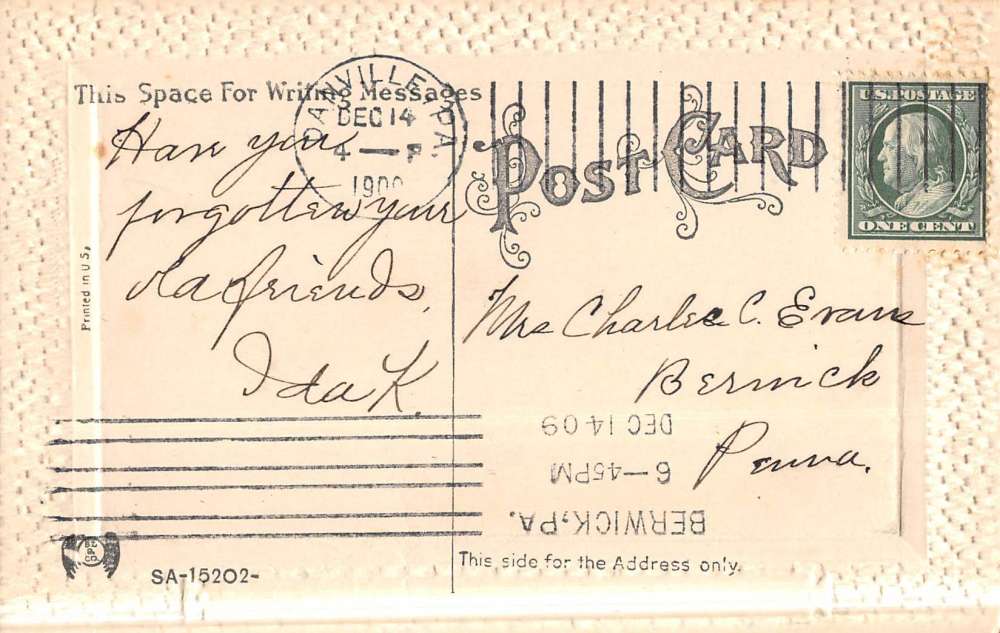 This Space For Writing Messages
DANVILLE, PA.
DEC 14
4 — P
1909
POST CARD
U.S. POSTAGE
ONE CENT
Have you
forgotten your
old friends,
Ida K.
Printed in U S,
Mrs Charles C. Evans
Berwick
Penna.
BERWICK, PA.
6—45PM
DEC 14 09
SA-15202-
This side for the Address only.